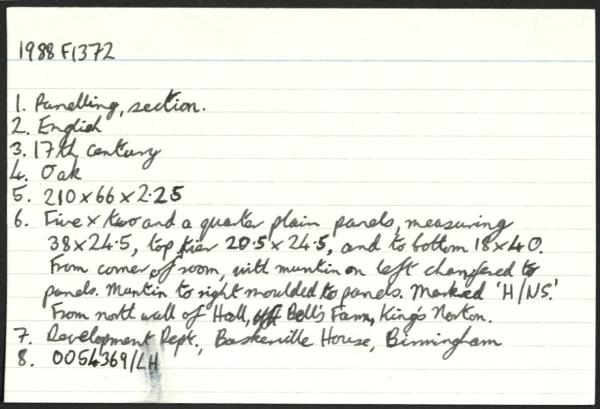 1988 F1372
1. Panelling, section.
2. English
3. 17th century
4. Oak
5. 210 x 66 x 2.25
6. Five x two and a quarter plain panels, measuring
38 x 24.5, top tier 20.5 x 24.5, and to bottom 18 x 40.
From corner of room, with muntin on left chamfered to
panels. Muntin to right moulded to panels. Marked 'H/NS.'
From north wall of Hall, Bell's Farm, King's Norton.
7. Development Dept., Baskerville House, Birmingham
8. 0054369/LH